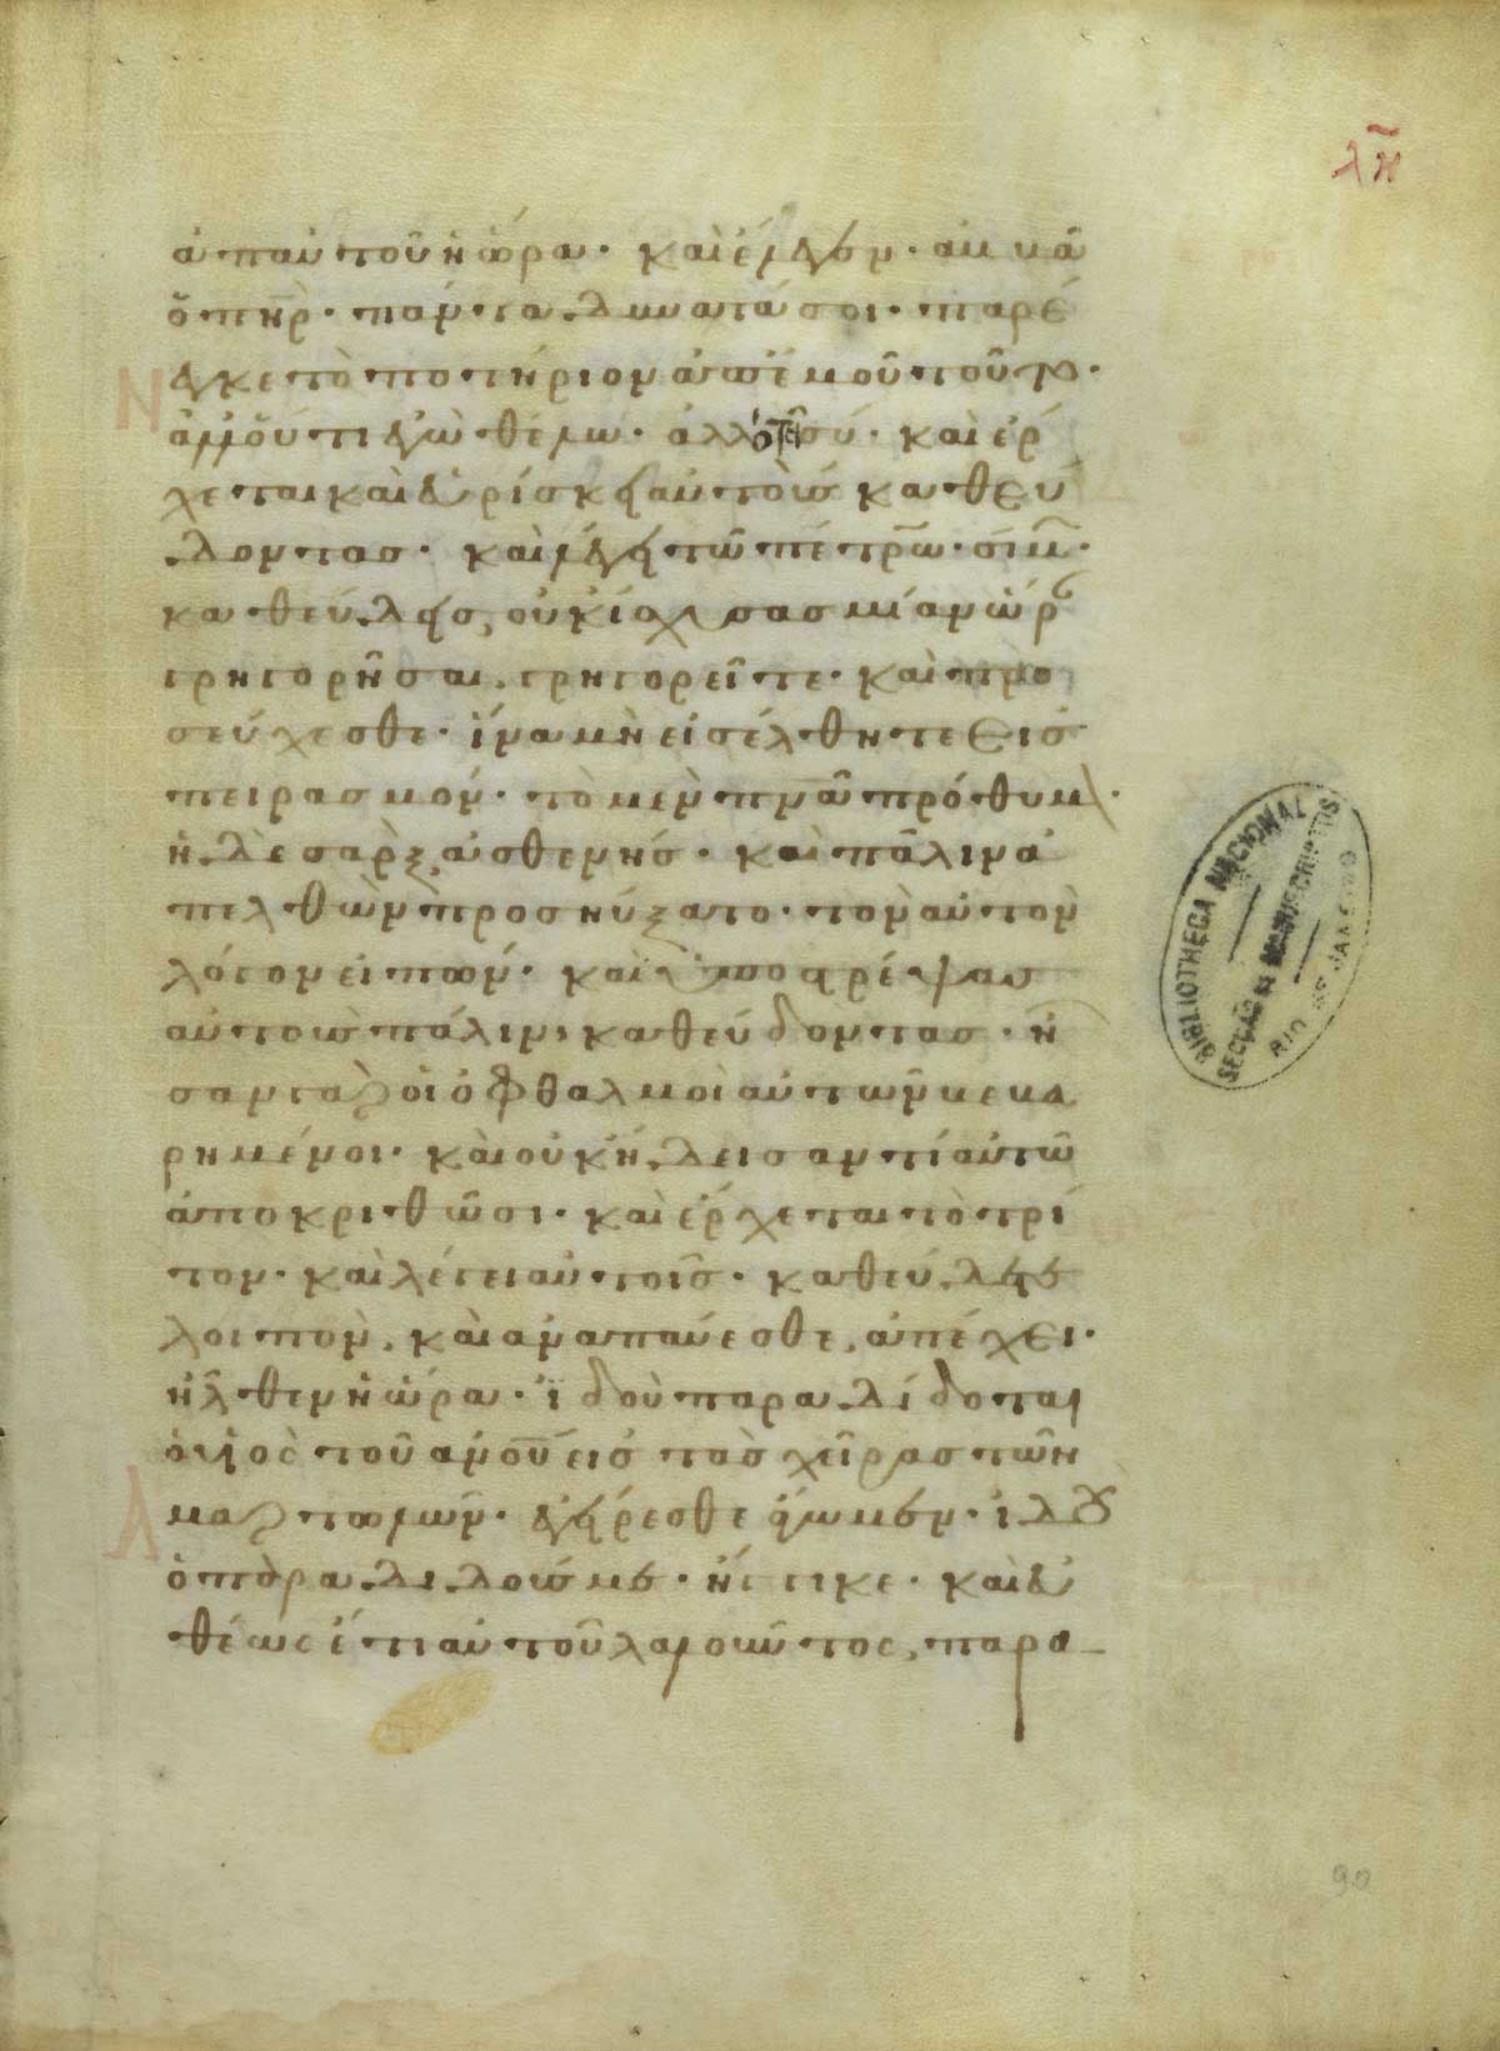 λη
ἀπ αὐτοῦ ἡ ὥρα· καὶ ἔλεγεν· ἀββᾶ
ὁ πηρ· πάντα δυνατά σοι· παρέ
νεγκε τὸ ποτήριον ἀπ ἐμοῦ τοῦτο·
ἀλλ οὐ τί ἐγὼ θέλω· ἀλλ ὅτι σύ· καὶ ἔρ
χεται καὶ εὑρίσκει αὐτοὺς καθεύ
δοντας· καὶ λέγει τῶ πέτρω· σίμ·
καθεύδεις, οὐκ ἰσχυσας μίαν ὥρ
γρηγορῆσαι, γρηγορεῖτε· καὶ προ
σεύχεσθε· ἵνα μὴ εἰσέλθητε εἰς
πειρασμόν· τὸ μὲν πνα πρόθυμ·
ἡ δὲ σὰρξ ἀσθενής· καὶ πάλιν ἀ
πελθὼν προσηύξατο· τὸν αὐτὸν
λόγον εἰπών· καὶ ὑποστρέψας
αὐτοὺς πάλιν, καθεύδοντας· ἦ
σαν γὰρ οἱ ὀφθαλμοὶ αὐτῶν βεβα
ρημένοι· καὶ οὐκ ἤδεισαν τί αὐτῶ
ἀποκριθῶσι· καὶ ἔρχεται τὸ τρί
τον· καὶ λέγει αὐτοῖς· καθεύδετε
λοιπὸν, καὶ ἀναπαύεσθε, ἀπέχει·
ἦλθεν ἡ ὥρα· ἰδοὺ παραδίδοται
ὁ υἱὸς τοῦ ανου εἰς τὰς χεῖρας τῶν
ἁμαρτωλῶν· ἐγείρεσθε ἄγωμεν· ἰδοὺ
ὁ παραδιδούς με· ἤγγικε· καὶ εὐ
θέως ἔτι αὐτοῦ λαλοῦντος, παρα
BIBLIOTHECA NACIONAL
SECÇÃO DE MANUSCRIPTOS
RIO DE JANEIRO
90